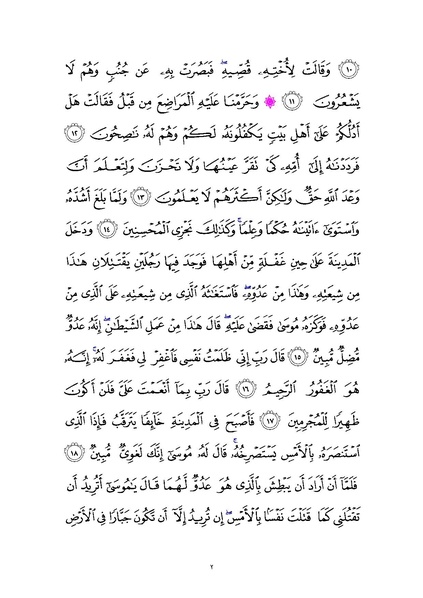 ۝١٠ وَقَالَتْ لِأُخْتِهِۦ قُصِّيهِۖ فَبَصُرَتْ بِهِۦ عَن جُنُبٍ وَهُمْ لَا
يَشْعُرُونَ ۝١١ ۞ وَحَرَّمْنَا عَلَيْهِ ٱلْمَرَاضِعَ مِن قَبْلُ فَقَالَتْ هَلْ
أَدُلُّكُمْ عَلَىٰٓ أَهْلِ بَيْتٍ يَكْفُلُونَهُۥ لَكُمْ وَهُمْ لَهُۥ نَٰصِحُونَ ۝١٢
فَرَدَدْنَٰهُ إِلَىٰٓ أُمِّهِۦ كَىْ تَقَرَّ عَيْنُهَا وَلَا تَحْزَنَ وَلِتَعْلَمَ أَنَّ
وَعْدَ ٱللَّهِ حَقٌّ وَلَٰكِنَّ أَكْثَرَهُمْ لَا يَعْلَمُونَ ۝١٣ وَلَمَّا بَلَغَ أَشُدَّهُۥ
وَٱسْتَوَىٰٓ ءَاتَيْنَٰهُ حُكْمًا وَعِلْمًاۚ وَكَذَٰلِكَ نَجْزِى ٱلْمُحْسِنِينَ ۝١٤ وَدَخَلَ
ٱلْمَدِينَةَ عَلَىٰ حِينِ غَفْلَةٍ مِّنْ أَهْلِهَا فَوَجَدَ فِيهَا رَجُلَيْنِ يَقْتَتِلَانِ هَٰذَا
مِن شِيعَتِهِۦ وَهَٰذَا مِنْ عَدُوِّهِۦۖ فَٱسْتَغَٰثَهُ ٱلَّذِى مِن شِيعَتِهِۦ عَلَى ٱلَّذِى مِنْ
عَدُوِّهِۦ فَوَكَزَهُۥ مُوسَىٰ فَقَضَىٰ عَلَيْهِۖ قَالَ هَٰذَا مِنْ عَمَلِ ٱلشَّيْطَٰنِۖ إِنَّهُۥ عَدُوٌّ
مُّضِلٌّ مُّبِينٌ ۝١٥ قَالَ رَبِّ إِنِّى ظَلَمْتُ نَفْسِى فَٱغْفِرْ لِى فَغَفَرَ لَهُۥٓۚ إِنَّهُۥ
هُوَ ٱلْغَفُورُ ٱلرَّحِيمُ ۝١٦ قَالَ رَبِّ بِمَآ أَنْعَمْتَ عَلَىَّ فَلَنْ أَكُونَ
ظَهِيرًا لِّلْمُجْرِمِينَ ۝١٧ فَأَصْبَحَ فِى ٱلْمَدِينَةِ خَآئِفًا يَتَرَقَّبُ فَإِذَا ٱلَّذِى
ٱسْتَنصَرَهُۥ بِٱلْأَمْسِ يَسْتَصْرِخُهُۥۚ قَالَ لَهُۥ مُوسَىٰٓ إِنَّكَ لَغَوِىٌّ مُّبِينٌ ۝١٨
فَلَمَّآ أَنْ أَرَادَ أَن يَبْطِشَ بِٱلَّذِى هُوَ عَدُوٌّ لَّهُمَا قَالَ يَٰمُوسَىٰٓ أَتُرِيدُ أَن
تَقْتُلَنِى كَمَا قَتَلْتَ نَفْسًۢا بِٱلْأَمْسِۖ إِن تُرِيدُ إِلَّآ أَن تَكُونَ جَبَّارًا فِى ٱلْأَرْضِ
٢